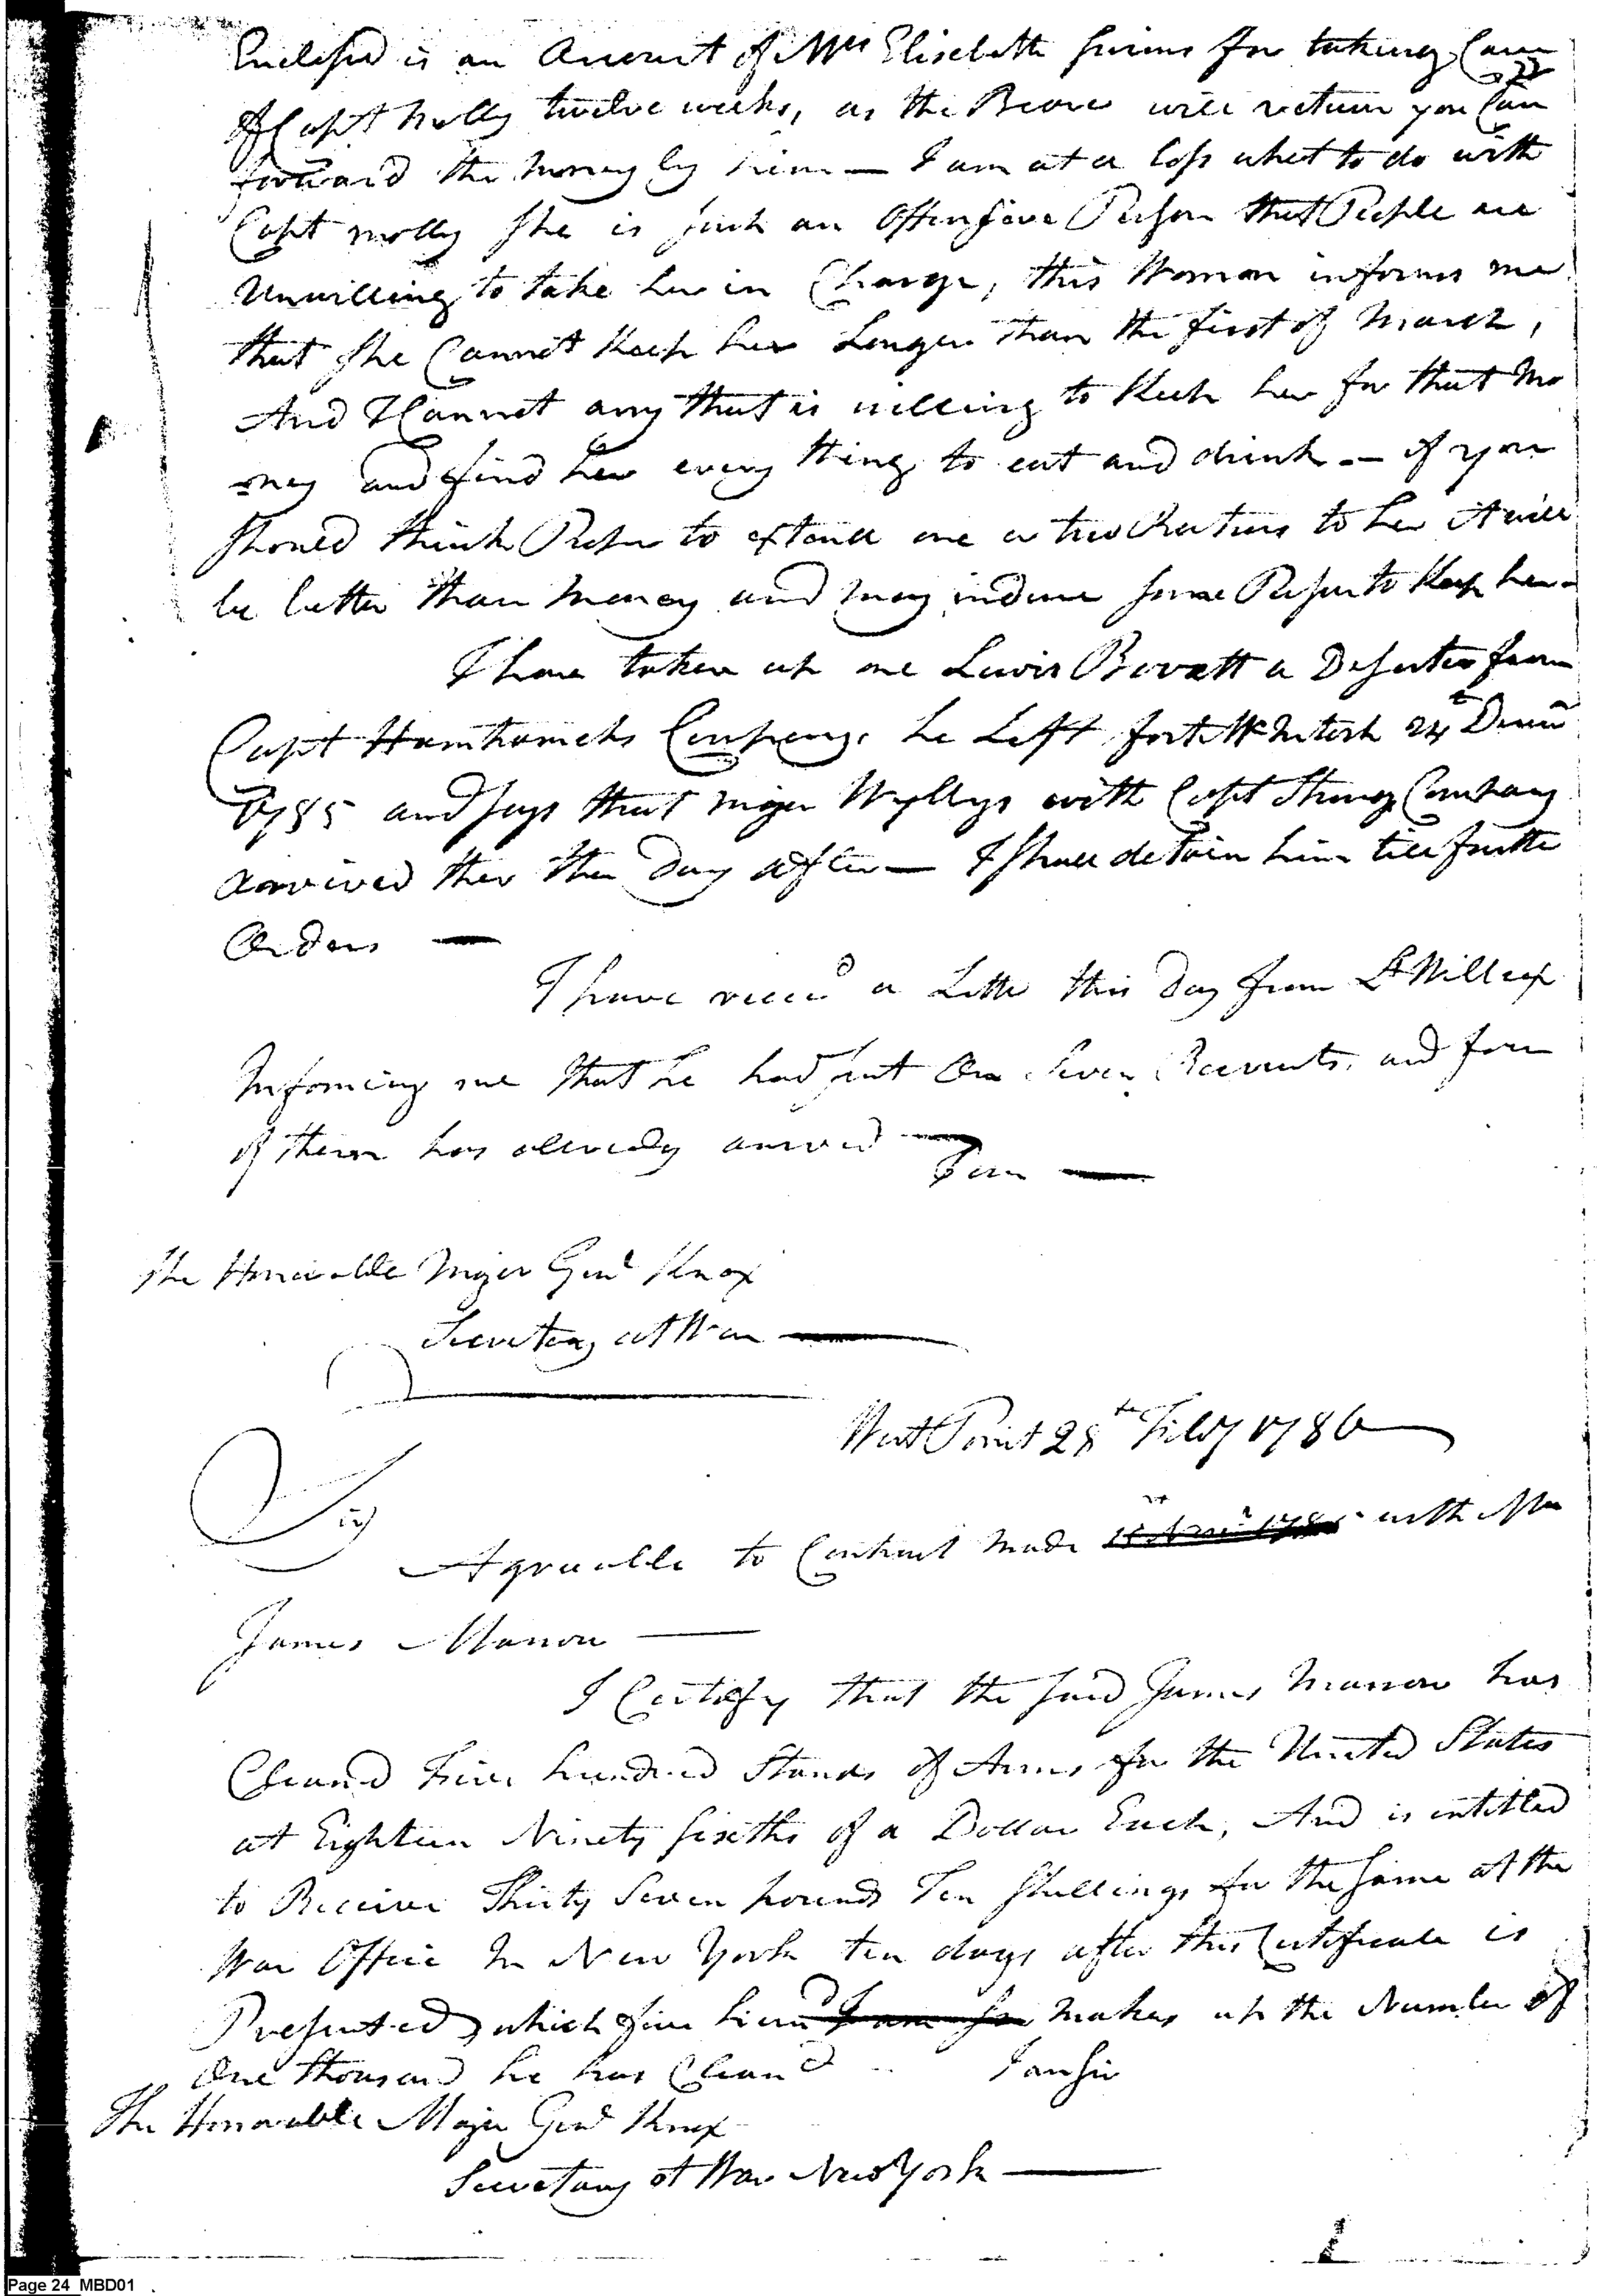 Enclosed is an Account of Mrs Elisebeth for taking Care
of Capt Molly twelve weeks, as the Bearer will return you Can
forward the money by him — I am at a loss what to do with
Capt molly She is Such an Offensive Person that People are
Unwilling to take her in Charge, this Woman informs me
that She Cannot Keep her Longer than the first of March,
And I Cannot any that is willing to Keep her for that Mo
ney and find her every thing to eat and drink — if you
Should think Proper to one or two Rations to her it will
be better than money and may induce some Person to Keep her -
I have taken up one Lewis Bovett a Deserter from
Capt Hamtramcks Company, he Left fort McIntosh 24th Decem
1785 and says that major Wyllys with Capt Strong Company
arrived ther the Day after — I Shall detain him till further
Orders —
I have recievd a Letter this Day from Lt Willcox
Informing me that he had Sent On Seven Recruits, and four
of them has already arrived — I am —
The Honorable Major Genl Knox
Secretary at War —
West Point 28th Feby 1786 —
Sir
Agreeable to Contract made with Mr
James Marrow —
I Certefy that the said James Marrow has
Cleand Five hundred Stands of Arms for the United States
at Eighteen Ninety sixths of a Dollar Each, And is intitled
to Receive Thirty Seven pounds Ten Shillings for the same at the
War Office In New York ten days after this Certificate is
Presented, which five hund makes up the Number of
One thousand he has Cleand .. I am Sir
The Honorable Major Genl Knox
Secretary at War New York —
Page 24 MBD01